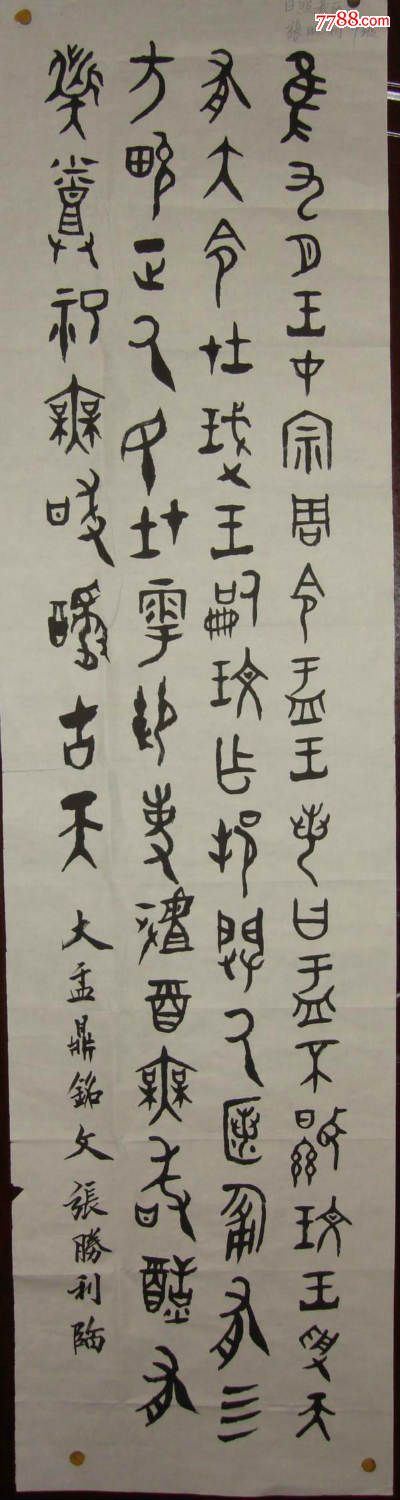 7788.com
隹九月王才宗周令盂王若曰盂不顯玟王受天
有大令在珷王嗣玟乍邦闢厥匿匍有四
方畯正厥民在雩御事𠭯酉無敢酖有
祡烝祀無敢醻古天
大盂鼎銘文張勝利臨